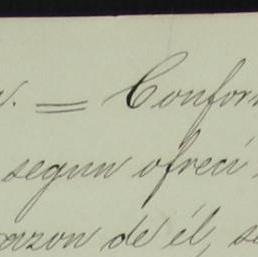 . = Confor
segun ofreci
razon de él, s